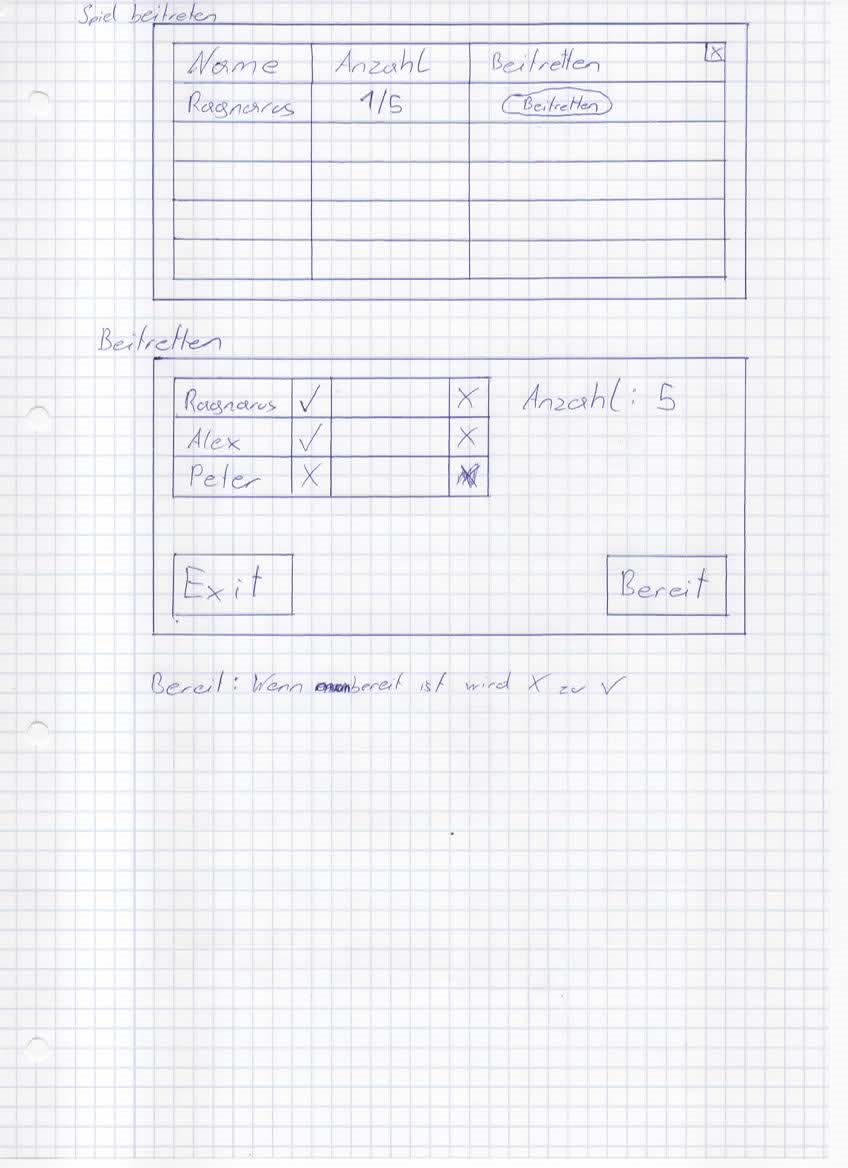 Spiel beitreten
Name Anzahl Beitretten X
Ragnarus 1/5 Beitretten
Beitretten
Ragnarus ✓ X Anzahl: 5
Alex ✓ X
Peter X
Exit Bereit
Bereit: Wenn bereit ist wird X zu ✓